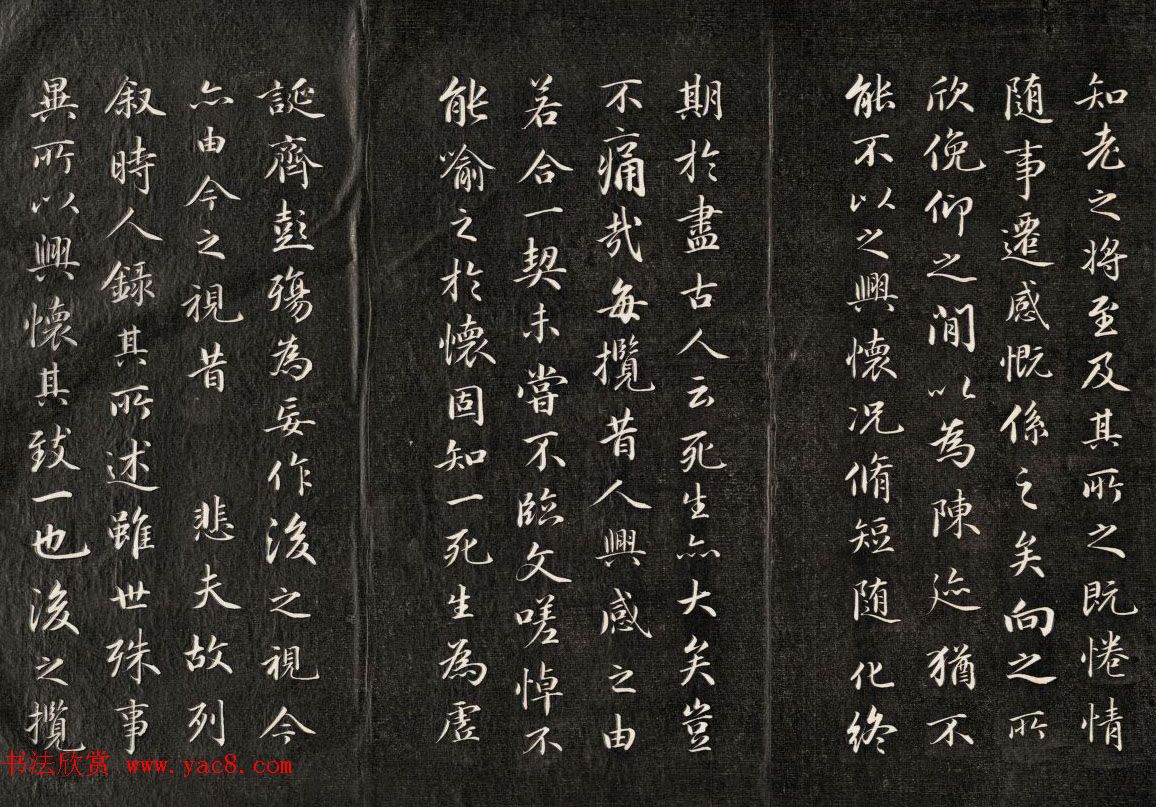 知老之將至及其所之既惓情
随事遷感慨係之矣向之所
欣俛仰之間以為陳迹猶不
能不以之興懷況脩短随化終
期於盡古人云死生亦大矣豈
不痛哉每攬昔人興感之由
若合一契未嘗不臨文嗟悼不
能喻之於懷固知一死生為虛
誕齊彭殤為妄作後之視今
亦由今之視昔 悲夫故列
叙時人錄其所述雖世殊事
異所以興懷其致一也後之攬
书法欣赏 www.yac8.com